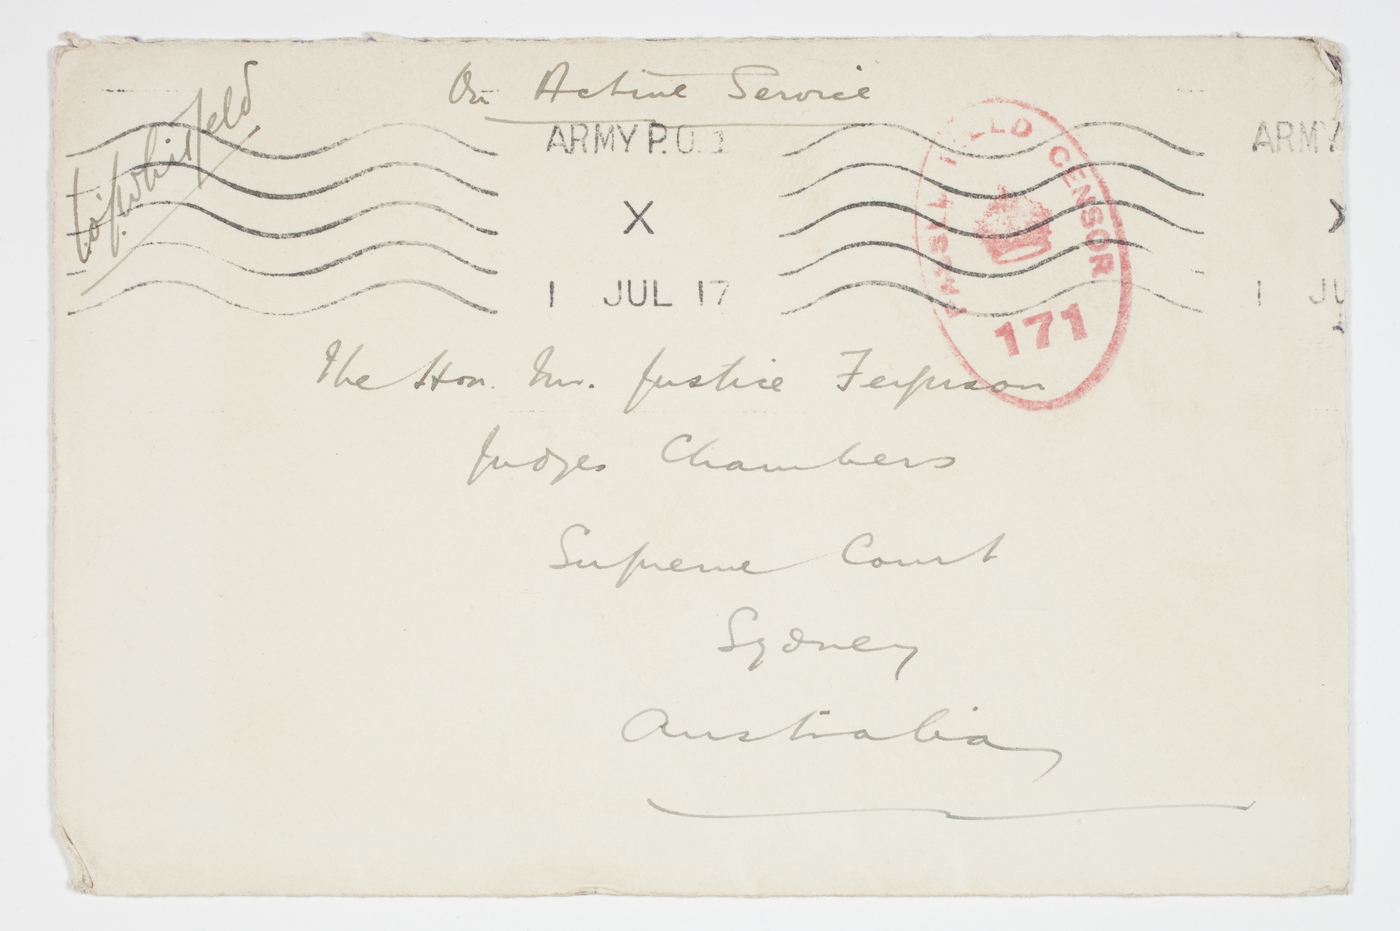 On Active Service
ARMY P.O. 1
ARMY
X
X
1 JUL 17
1 JU
FIELD CENSOR
171
The Hon. Mr. Justice Ferguson
Judges Chambers
Supreme Court
Sydney
Australia